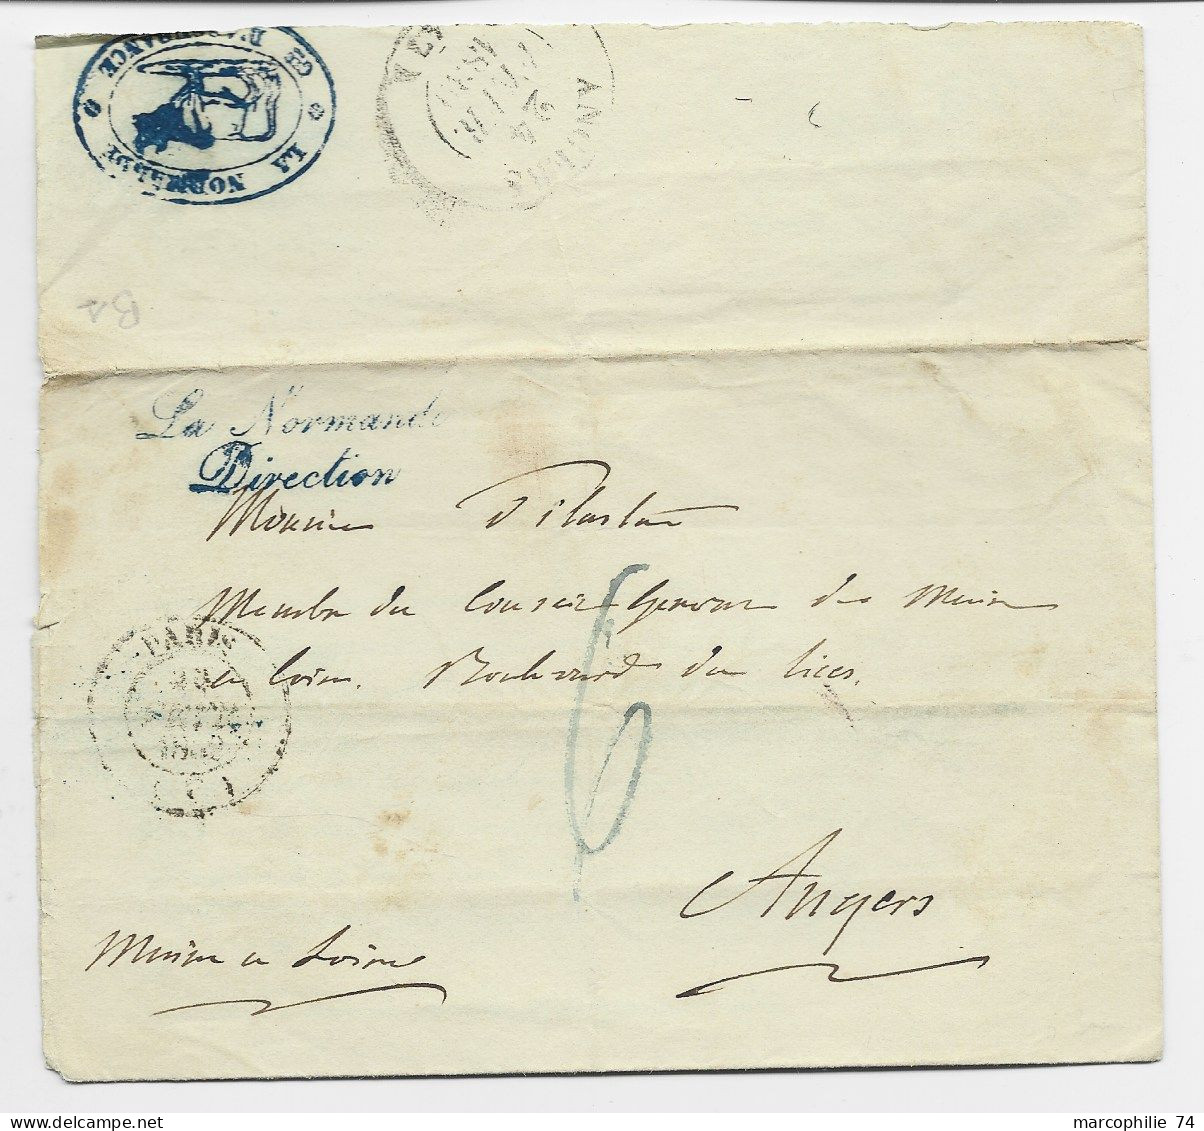 LA NORMANDE
CIE D'ASSURANCE
ANGERS
24
B4
La Normande
Direction
Monsieur
Membre du Conseil General de Maine
et Loire. Boulevard des Lices.
PARIS
6
Angers
Maine et Loire
marcophilie 74